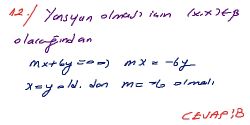 12-/ Yansıyan olması için (x,x)∈β
olacağından
mx+6y=0 ⇒ mx=-6y
x=y old. dan m=-6 olmalı
CEVAP:B